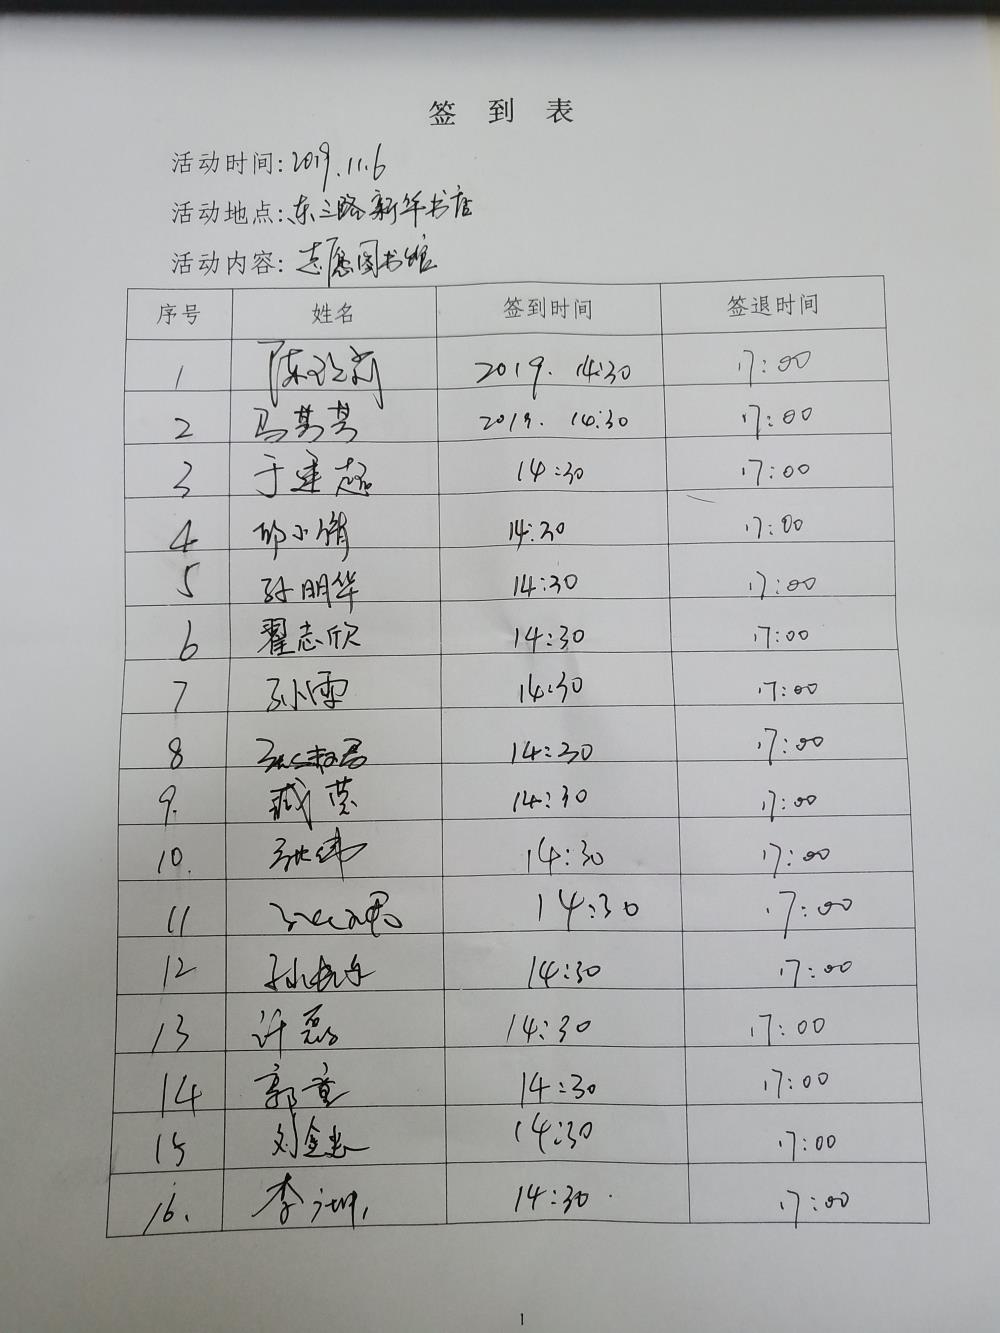 签到表
活动时间:2019.11.6
活动地点:东三路新华书店
活动内容:志愿图书馆
序号 姓名 签到时间 签退时间
1 陈 2019. 14:30 17:00
2 马某某 2019. 14:30 17:00
3 于建超 14:30 17:00
4 邱小倩 14:30 17:00
5 孙明华 14:30 17:00
6 翟志欣 14:30 17:00
7 孙雷 14:30 17:00
8 14:30 17:00
9. 臧 14:30 17:00
10. 张伟 14:30 17:00
11 14:30 17:00
12 孙 14:30 17:00
13 许磊 14:30 17:00
14 郭童 14:30 17:00
15 刘金 14:30 17:00
16. 李坤 14:30 17:00
1